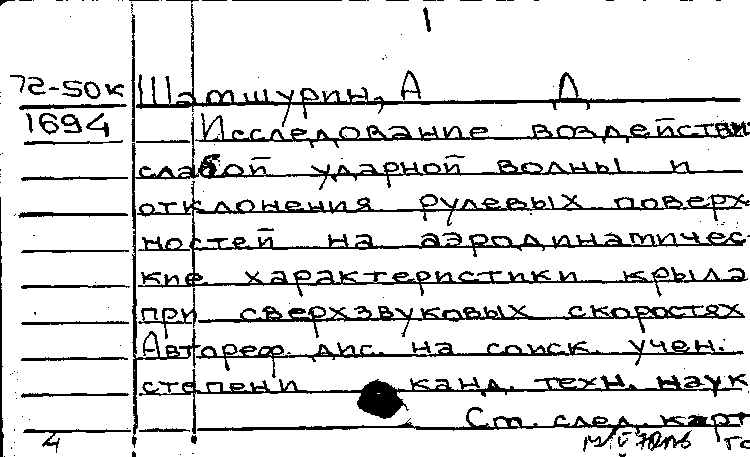 1
72-50к Шамшурин, А Д
1694 Исследование воздействи
слабой ударной волны и
отклонения рулевых поверх
ностей на аэродинамичес
кие характеристики крыла
при сверхзвуковых скоростях
Автореф. дис. на соиск. учен.
степени канд. техн. наук
Ст. след. карт
4